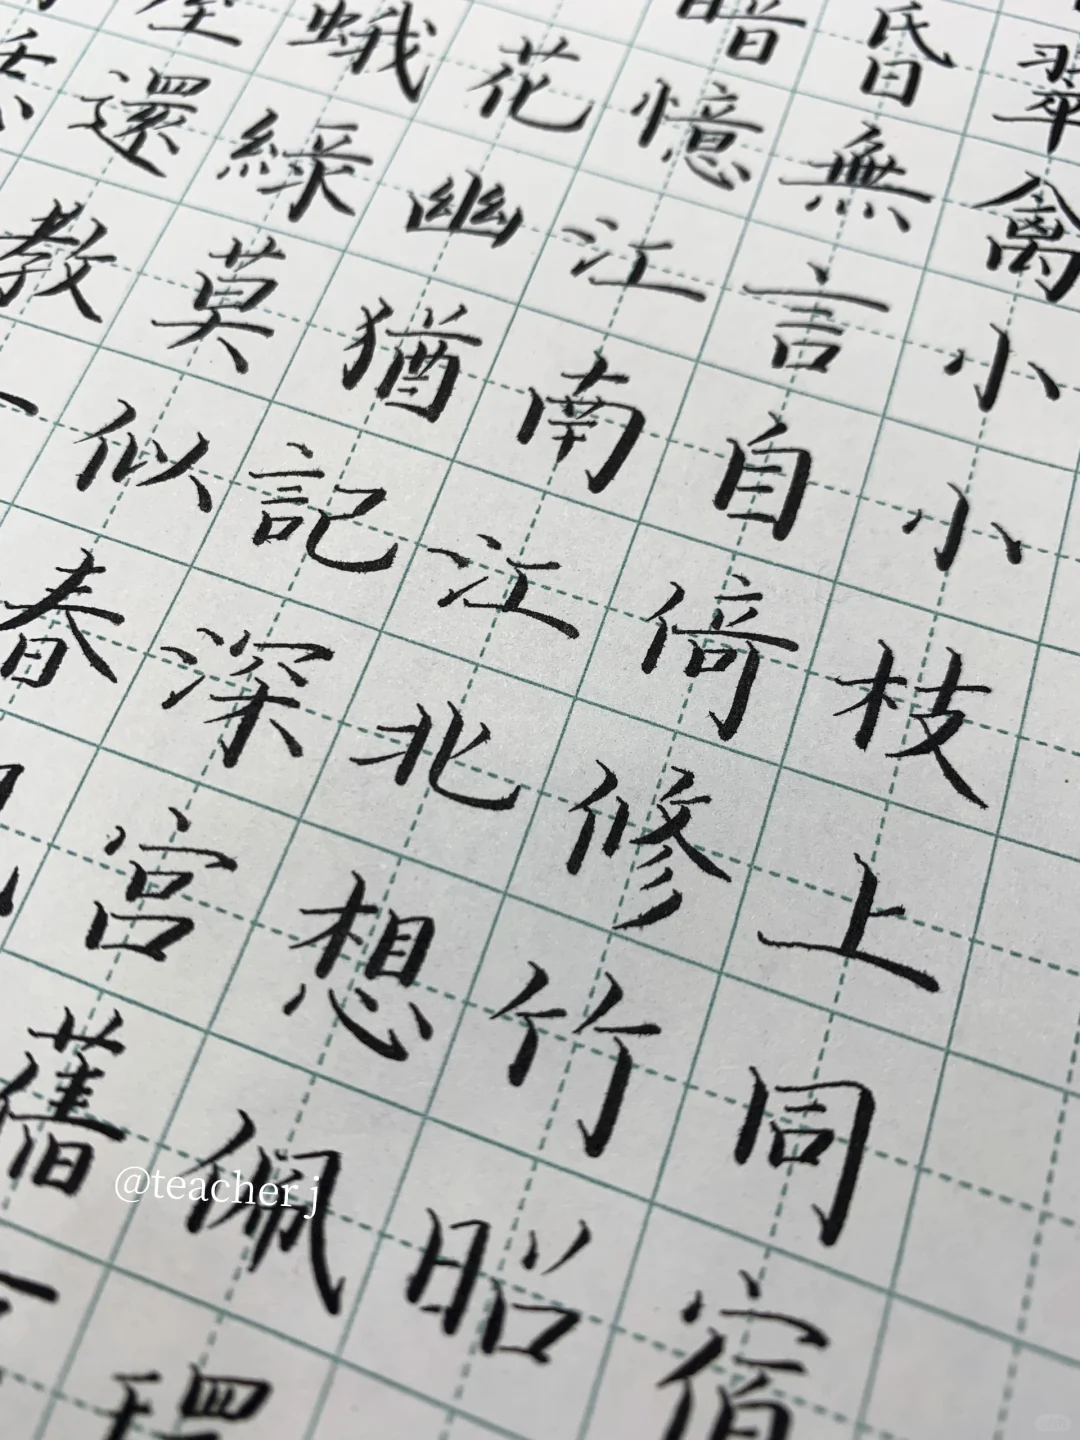 翠禽小小枝上同宿
昏無言自倚修竹昭
暗憶江南江北想佩環
花幽猶記深宮舊
蛾綠莫似春
屋還教一
@teacher j